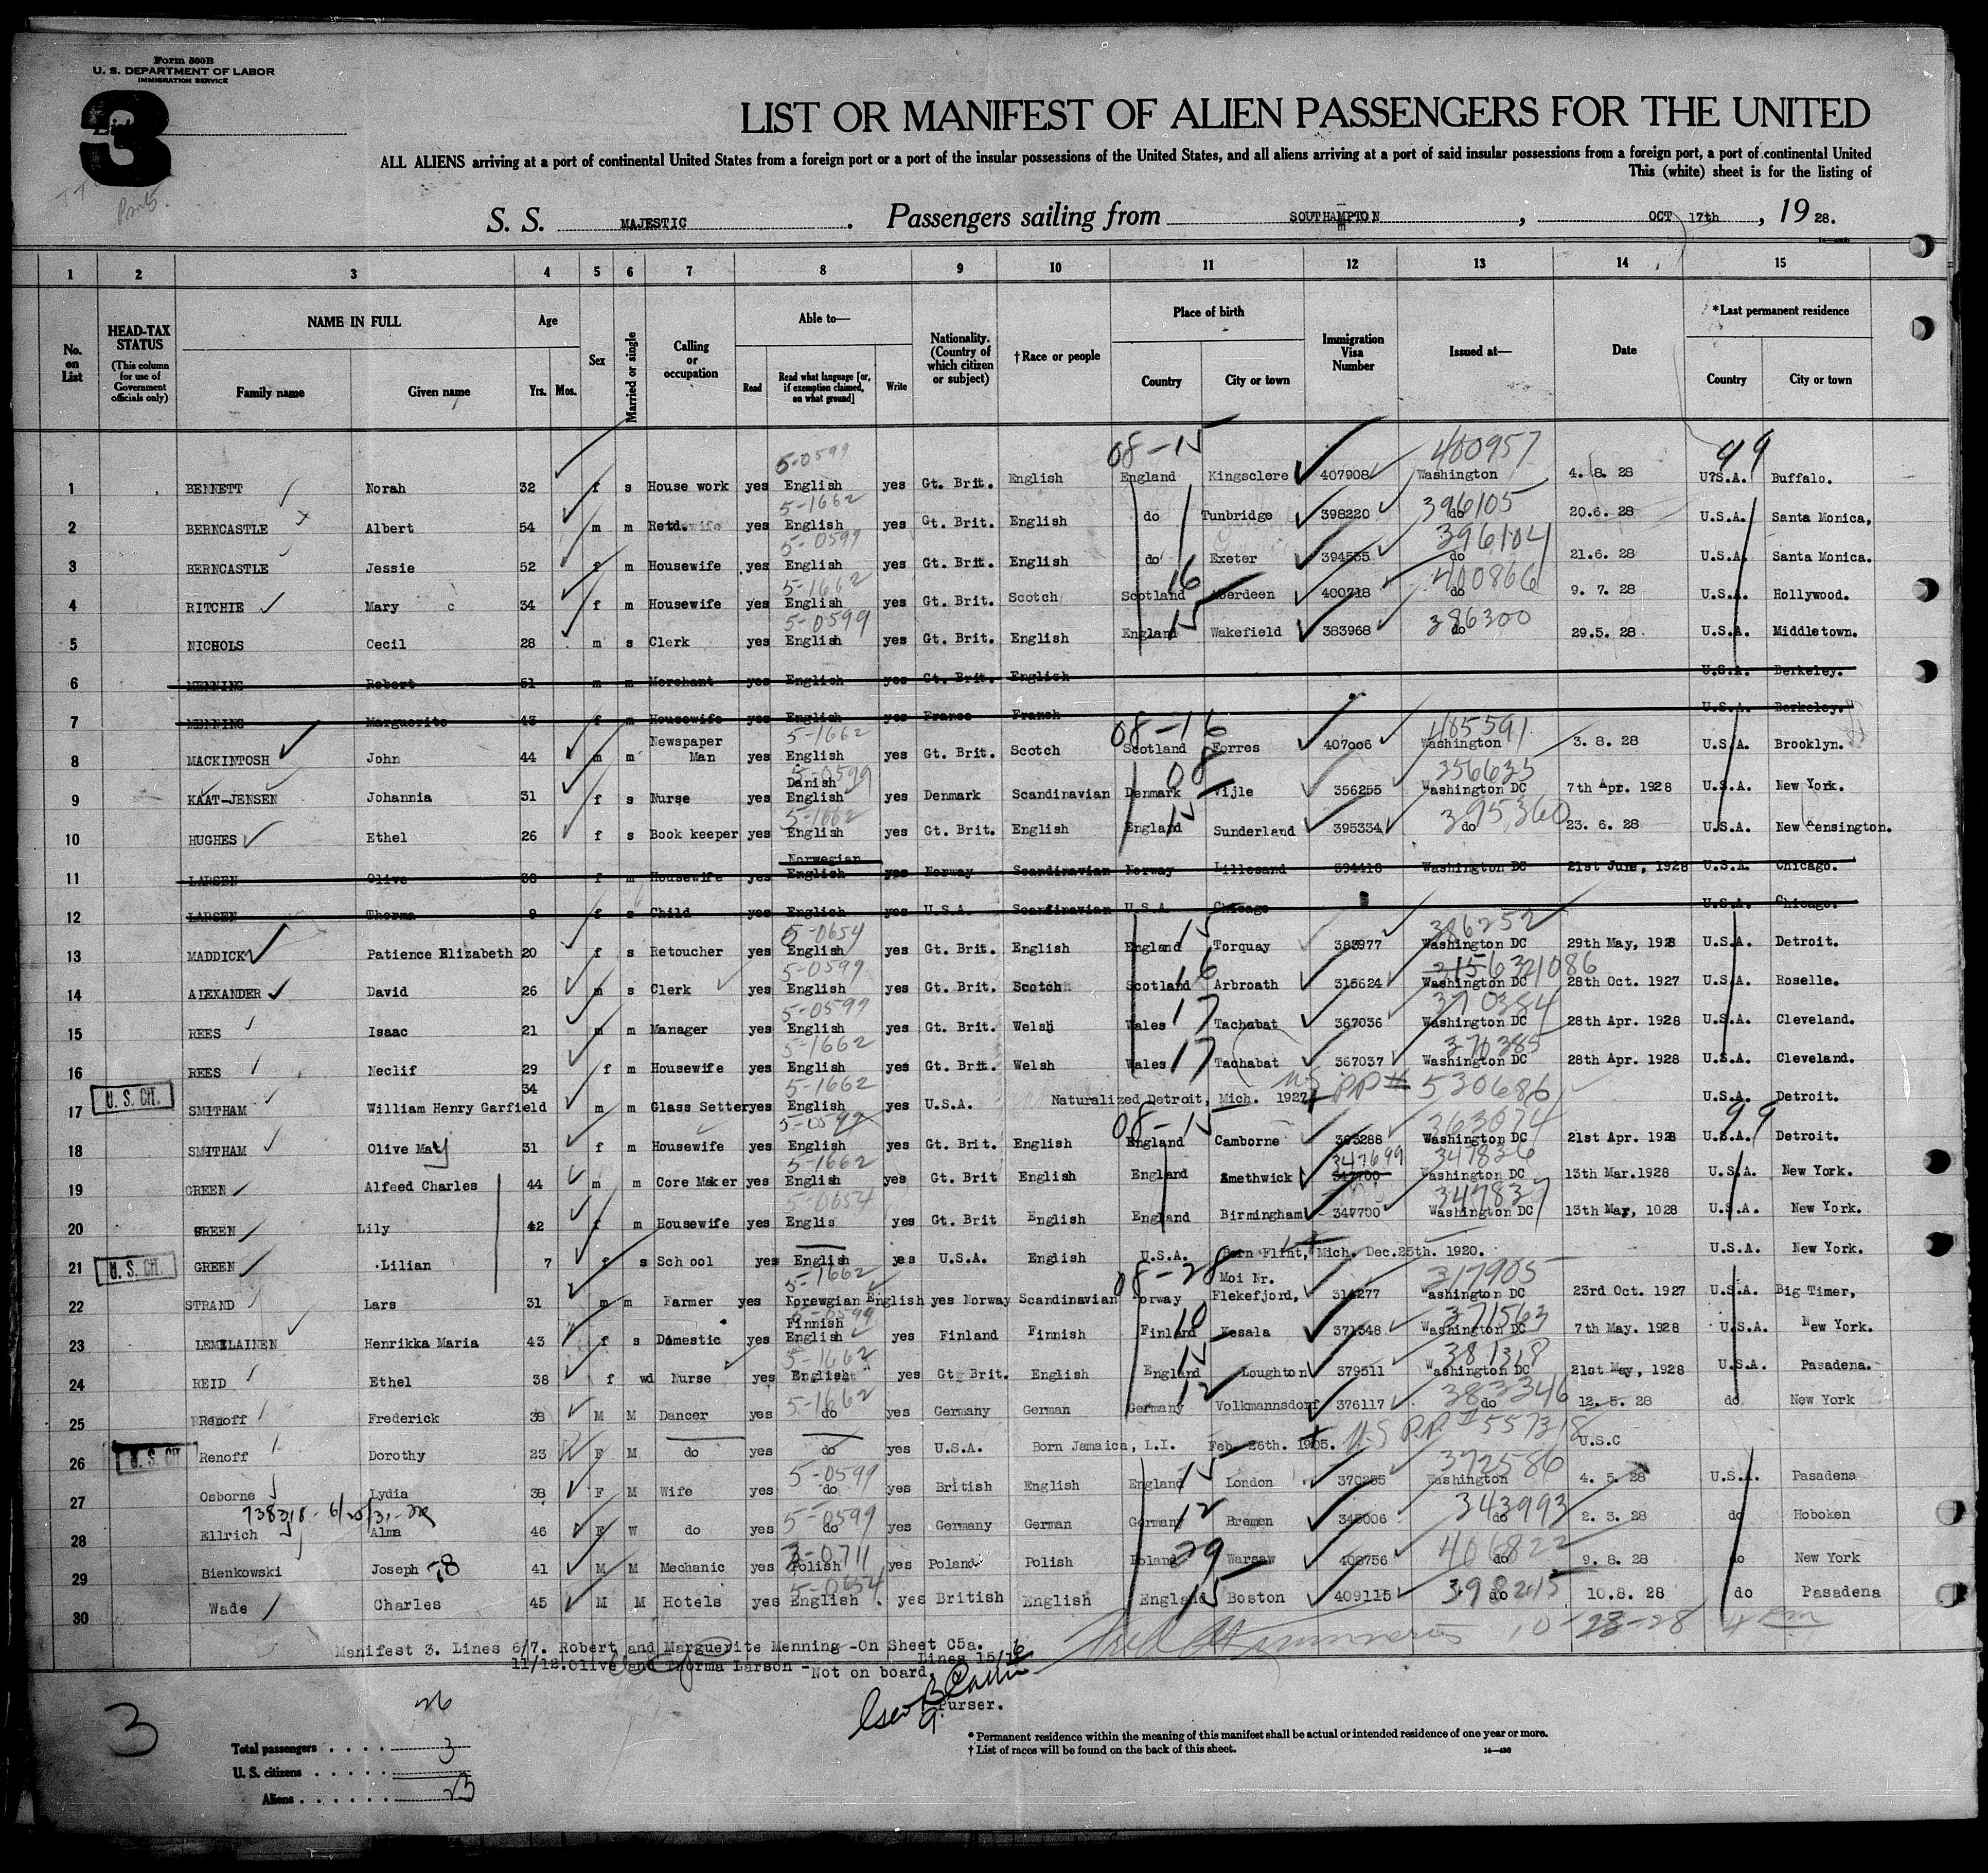 Form 500B
U. S. DEPARTMENT OF LABOR
IMMIGRATION SERVICE
3
LIST OR MANIFEST OF ALIEN PASSENGERS FOR THE UNITED
ALL ALIENS arriving at a port of continental United States from a foreign port or a port of the insular possessions of the United States, and all aliens arriving at a port of said insular possessions from a foreign port, a port of continental United
This (white) sheet is for the listing of
S. S. MAJESTIC. Passengers sailing from SOUTHAMPTON, OCT 17th, 19 28.
1 2 3 4 5 6 7 8 9 10 11 12 13 14 15
No. on List
HEAD-TAX STATUS (This column for use of Government officials only)
NAME IN FULL Family name Given name
Age Yrs. Mos.
Sex
Married or single
Calling or occupation
Able to— Read Read what language [or, if exemption claimed, on what ground] Write
Nationality. (Country of which citizen or subject)
†Race or people
Place of birth Country City or town
Immigration Visa Number
Issued at—
Date
*Last permanent residence Country City or town
5-0599 08-15 400957 99
1 BENNETT Norah 32 f s House work yes English yes Gt. Brit. English England Kingsclere 407908 Washington 4. 8. 28 U?S.A. Buffalo.
5-1662 396105
2 BERNCASTLE Albert 54 m m Retd. yes English yes Gt. Brit. English do Tunbridge 398220 do 20.6. 28 U.S.A. Santa Monica,
5-0599 396104
3 BERNCASTLE Jessie 52 f m Housewife yes English yes Gt. Brit. English do Exeter 394555 do 21.6. 28 U.S.A. Santa Monica.
5-1662 16 400866
4 RITCHIE Mary c 34 f m Housewife yes English yes Gt. Brit. Scotch Scotland Aberdeen 400718 do 9. 7. 28 U.S.A. Hollywood.
5-0599 15 386300
5 NICHOLS Cecil 28 m s Clerk yes English yes Gt. Brit. English England Wakefield 383968 do 29.5. 28 U.S.A. Middletown.
6 MENNING Robert 51 m m Merchant yes English yes Gt. Brit. English U.S.A. Berkeley.
7 MENNING Marguerite 43 f m Housewife yes English yes France French U.S.A. Berkeley.
5-1662 08-16 485591
8 MACKINTOSH John 44 m m Newspaper Man yes English yes Gt. Brit. Scotch Scotland Forres 407006 Washington 3. 8. 28 U.S.A. Brooklyn.
5-0599 08 356635
9 KAAT-JENSEN Johannia 31 f s Nurse yes Danish English yes Denmark Scandinavian Denmark Vijle 356255 Washington DC 7th Apr. 1928 U.S.A. New York.
5-1662 15 395360
10 HUGHES Ethel 26 f s Book keeper yes English yes Gt. Brit. English England Sunderland 395334 do 23. 6. 28 U.S.A. New Kensington.
11 LARSEN Olive 38 f m Housewife yes Norwegian English yes Norway Scandinavian Norway Lillesand 394418 Washington DC 21st June, 1928 U.S.A. Chicago.
12 LARSEN Thorma 9 f s Child yes English yes U.S.A. Scandinavian U.S.A. Chicago U.S.A. Chicago.
5-0654 15 386252
13 MADDICK Patience Elizabeth 20 f s Retoucher yes English yes Gt. Brit. English England Torquay 383977 Washington DC 29th May, 1928 U.S.A. Detroit.
5-0599 16
14 ALEXANDER David 26 m s Clerk yes English yes Gt. Brit. Scotch Scotland Arbroath 315624 Washington DC 28th Oct. 1927 U.S.A. Roselle.
5-0599 17 370384
15 REES Isaac 21 m m Manager yes English yes Gt. Brit. Welsh Wales Tachabat 367036 Washington DC 28th Apr. 1928 U.S.A. Cleveland.
5-1662 17 370385
16 REES Neclif 29 f m Housewife yes English yes Gt. Brit. Welsh Wales Tachabat 367037 Washington DC 28th Apr. 1928 U.S.A. Cleveland.
5-1662 US PP# 530686
17 U. S. CIT. SMITHAM William Henry Garfield 34 m m Glass Setter yes English yes U.S.A. Naturalized Detroit, Mich. 1927 U.S.A. Detroit.
5-0599 08-15 363074 99
18 SMITHAM Olive May 31 f m Housewife yes English yes Gt. Brit. English England Camborne 363288 Washington DC 21st Apr. 1928 U.S.A. Detroit.
5-1662 347699 347836
19 GREEN Alfeed Charles 44 m m Core Maker yes English yes Gt. Brit English England Smethwick 347700 Washington DC 13th Mar.1928 U.S.A. New York.
5-0654 347837
20 GREEN Lily 42 f m Housewife yes Englis yes Gt. Brit English England Birmingham 347700 Washington DC 13th May, 1028 U.S.A. New York.
21 U. S. CIT. GREEN Lilian 7 f s School yes English yes U.S.A. English U.S.A. Born Flint, Mich. Dec.25th. 1920. U.S.A. New York.
5-1662 08-28 317905
22 STRAND Lars 31 m m Farmer yes Norewgian English yes Norway Scandinavian Norway Moi Nr. Flekefjord, 314277 Washington DC 23rd Oct. 1927 U.S.A. Big Timer,
5-0599 10 371563
23 LEMILAINEN Henrikka Maria 43 f s Domestic yes Finnish English yes Finland Finnish Finland Kesala 371348 Washington DC 7th May. 1928 U.S.A. New York.
5-1662 15 381318
24 REID Ethel 38 f wd Nurse yes English yes Gt. Brit. English England Loughton 379511 Washington DC 21st May, 1928 U.S.A. Pasadena.
5-1662 12 383346
25 Renoff Frederick 38 M M Dancer yes do yes Germany German Germany Volkmannsdorf 376117 do 12. 5. 28 do New York
US P.P. # 557318
26 U. S. CIT Renoff Dorothy 23 F M do yes do yes U.S.A. Born Jamaica, L.I. Feb. 26th. 1905. U.S.C
5-0599 15 372586
27 Osborne Lydia 38 F M Wife yes do yes British English England London 370255 Washington 4. 5. 28 U.S.A. Pasadena
5-0599 12 343993
28 Ellrich Alma 46 F W do yes do yes Germany German Germany Bremen 345006 do 2. 3. 28 do Hoboken
3-0711 29 406822
29 Bienkowski Joseph 41 M M Mechanic yes Polish yes Poland Polish Poland Warsaw 408756 do 9. 8. 28 do New York
5-0654 15 398215
30 Wade Charles 45 M M Hotels yes English yes British English England Boston 409115 do 10.8. 28 do Pasadena
10-23-28
Manifest 3. Lines 6/7. Robert and Marguerite Menning -On Sheet C5a. Lines 15/16
11/12.Olive and Thorma Larson -Not on board.
Purser.
3
Total passengers . . . . 26
U. S. citizens . . . . . 3
Aliens . . . . . . 23
* Permanent residence within the meaning of this manifest shall be actual or intended residence of one year or more.
† List of races will be found on the back of this sheet.